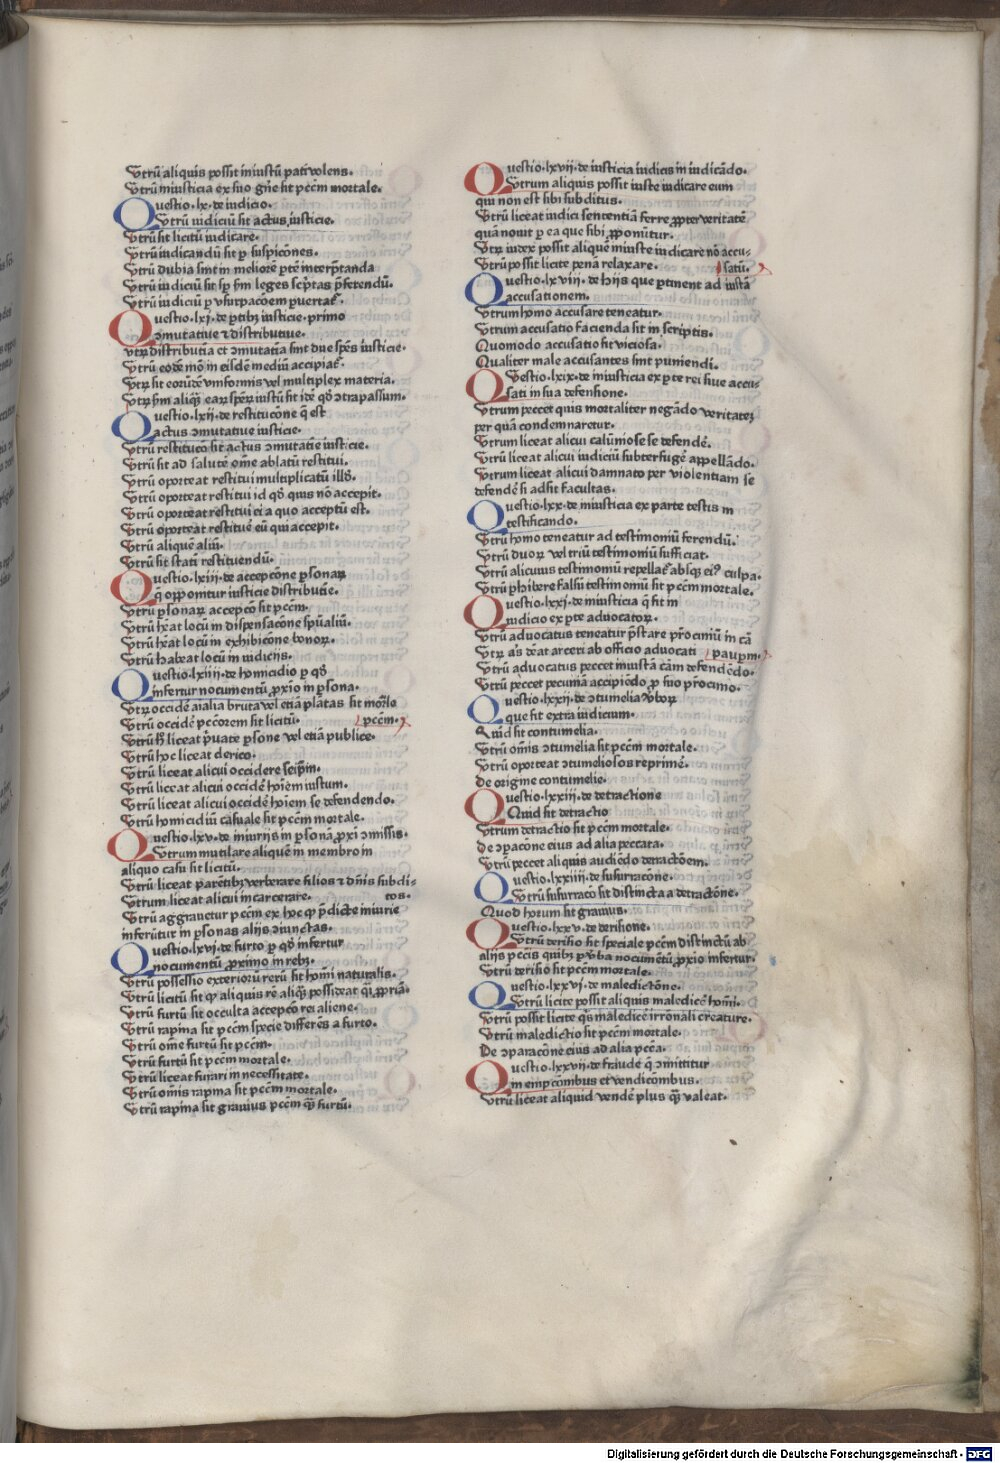 Utrū aliquis possit iniustū pati volens.
Utrū iniusticia ex suo gñe sit pctm mortale.
Questio .lx. de iudicio.
Utrū iudiciū sit actus iusticie.
Utrū sit licitū iudicare.
Utrū iudicandū sit p suspicōnes.
Utrū dubia sint in meliorē ptē interptanda
Utrū iudiciū sit sp sm leges scptas pferendū.
Utrū iudiciū p usurpacoem puertat.
Questio .lxi. de ptibz iusticie. primo
ɔmutatiue ⁊ distributiue.
Utrum distributiua et ɔmutatia sint due spēs iusticie.
Utrū eodē mō in eisdē mediū accipiat.
Utrum sit eorūdē uniformis vel multiplex materia.
Utrum sm aliqs earum sper iustū sit idē qd ɔtrapassum.
Questio .lxii. de restitucōne q est
actus ɔmutatiue iusticie.
Utrū restitucō sit actus ɔmutatie iusticie.
Utrū sit ad salutē om̄e ablatū restitui.
Utrū oporteat restitui multiplicatū illd.
Utrū oporteat restitui id qd quis nō accepit.
Utrū oporteat restitui ei a quo acceptū est.
Utrū oporteat restitué eū qui accepit.
Utrū aliquē aliū.
Utrū sit statī restituendū.
Questio .lxiii. de accepcōne psonarum
q opponitur iusticie distributiue.
Utrū psonarum accepcō sit pctm.
Utrū heat locū in dispensacōne spūaliū.
Utrū heat locū in exhibicōne bonorum.
Utrū habeat locū in iudiciis.
Questio .lxiiii. de homicidio p qd
infertur nocumentū proxio in psona.
Utrum occidē aialia bruta vel etiā plātas sit mortle
Utrū occidē pctōrem sit licitū. pctm.
Utrū hoc liceat puate psone vel etiā publice.
Utrū hoc liceat clerico.
Utrū liceat alicui occidere seipm.
Utrū liceat alicui occidē hoīem iustum.
Utrū liceat alicui occidē hoīem se defendendo.
Utrū homicidiū cāsuale sit pctm mortale.
Questio .lxv. de iniuriis in psonā proxi ɔmissis.
Utrum mutilare aliquē in membro in
aliquo casu sit licitū.
Utrū liceat parētibz verberare filios ⁊ dn̄is subdi-
Utrum liceat alicui incarcerare. tos.
Utrū aggrauetur pctm ex hoc qp pdicte iniurie
inferūtur in psonas aliis ɔiunctas.
Questio .lxvi. de furto p qd infertur
nocumentū proximo in rebz.
Utrū possessio exteriorū rerū sit homī naturalis.
Utrū licitū sit qp aliquis rē aliqs possideat qsi propriā.
Utrū furtū sit occulta accepcō rei aliene.
Utrū rapina sit pctm specie differēs a furto.
Utrū om̄e furtū sit pctm.
Utrū furtū sit pctm mortale.
Utrū liceat furari in necessitate.
Utrū om̄is rapina sit pctm mortale.
Utrū rapina sit grauius pctm qs furtū.
Questio .lxvii. de iusticia iudicis in iudicādo.
Utrum aliquis possit iuste iudicare eum
qui non est sibi subditus.
Utrū liceat iudici sententiā ferre propter veritatē
quā nouit p ea que sibi proponūtur.
Utrum iudex possit aliquē iniuste iudicare nō accu-
Utrū possit licite penā relaxare. satū.
Questio .lxviii. de hiis que ptinent ad iustā
accusationem.
Utrum homo accusare teneatur.
Utrum accusatio facienda sit in scriptis.
Quomodo accusatio sit viciosa.
Qualiter male accusantes sint puniendi.
QUestio .lxix. de iniusticia ex pte rei siue accu-
sati in sua defensione.
Utrum peccet quis mortaliter negādo veritatem
per quā condemnaretur.
Utrum liceat alicui calūniose se defendē.
Utrū liceat alicui iudiciū subterfugē appellādo.
Utrum liceat alicui damnato per violentiam se
defendē si adsit facultas.
Questio .lxx. de iniusticia ex parte testis in
testificando.
Utrū homo teneatur ad testimoniū ferendū.
Utrū duorum vel triū testimoniū sufficiat.
Utrū alicuius testimoniū repellat absqz eius culpa.
Utrū phibere falsū testimoniū sit pctm mortale.
Questio .lxxi. de iniusticia q fit in
iudicio ex pte aduocatorum.
Utrū aduocatus teneatur pstare prociniū in cā
Utrum as deat arceri ab officio aduocati paupm.
Utrū aduocatus peccet iniustā cām defendēdo.
Utrū peccet pecuniā accipiēdo p suo procinio.
Questio .lxxii. de ɔtumelia vborum
que fit extra iudicium.
Quid sit contumelia.
Utrū om̄is ɔtumelia sit pctm mortale.
Utrū oporteat ɔtumeliosos reprimē.
De origine contumelie.
Questio .lxxiii. de detractione
Quid sit detractio
Utrum detractio sit pctm mortale.
De ɔparacōne eius ad alia peccata.
Utrū peccet aliquis audiēdo detractōem.
Questio .lxxiiii. de susurracōne.
Utrū susurracō sit distincta a detractōne.
Quod horum sit grauius.
Questio .lxxv. de derisione.
Utrū derisio sit speciale pctm distinctū ab
aliis pctis quibz p vba nocumētū proxio infertur.
Utrū derisio sit pctm mortale.
Questio .lxxvi. de maledictōne.
Utrū licite possit aliquis maledicē homī.
Utrū possit licite qs maledicē irronali creature.
Utrū maledictio sit pctm mortale.
De ɔparacōne eius ad alia pctā.
Questio .lxxvii. de fraude q ɔmittitur
in empcōnibus et vendicōnibus.
Utrū liceat aliquid vendē plus qs valeat.
Digitalisierung gefördert durch die Deutsche Forschungsgemeinschaft - DFG